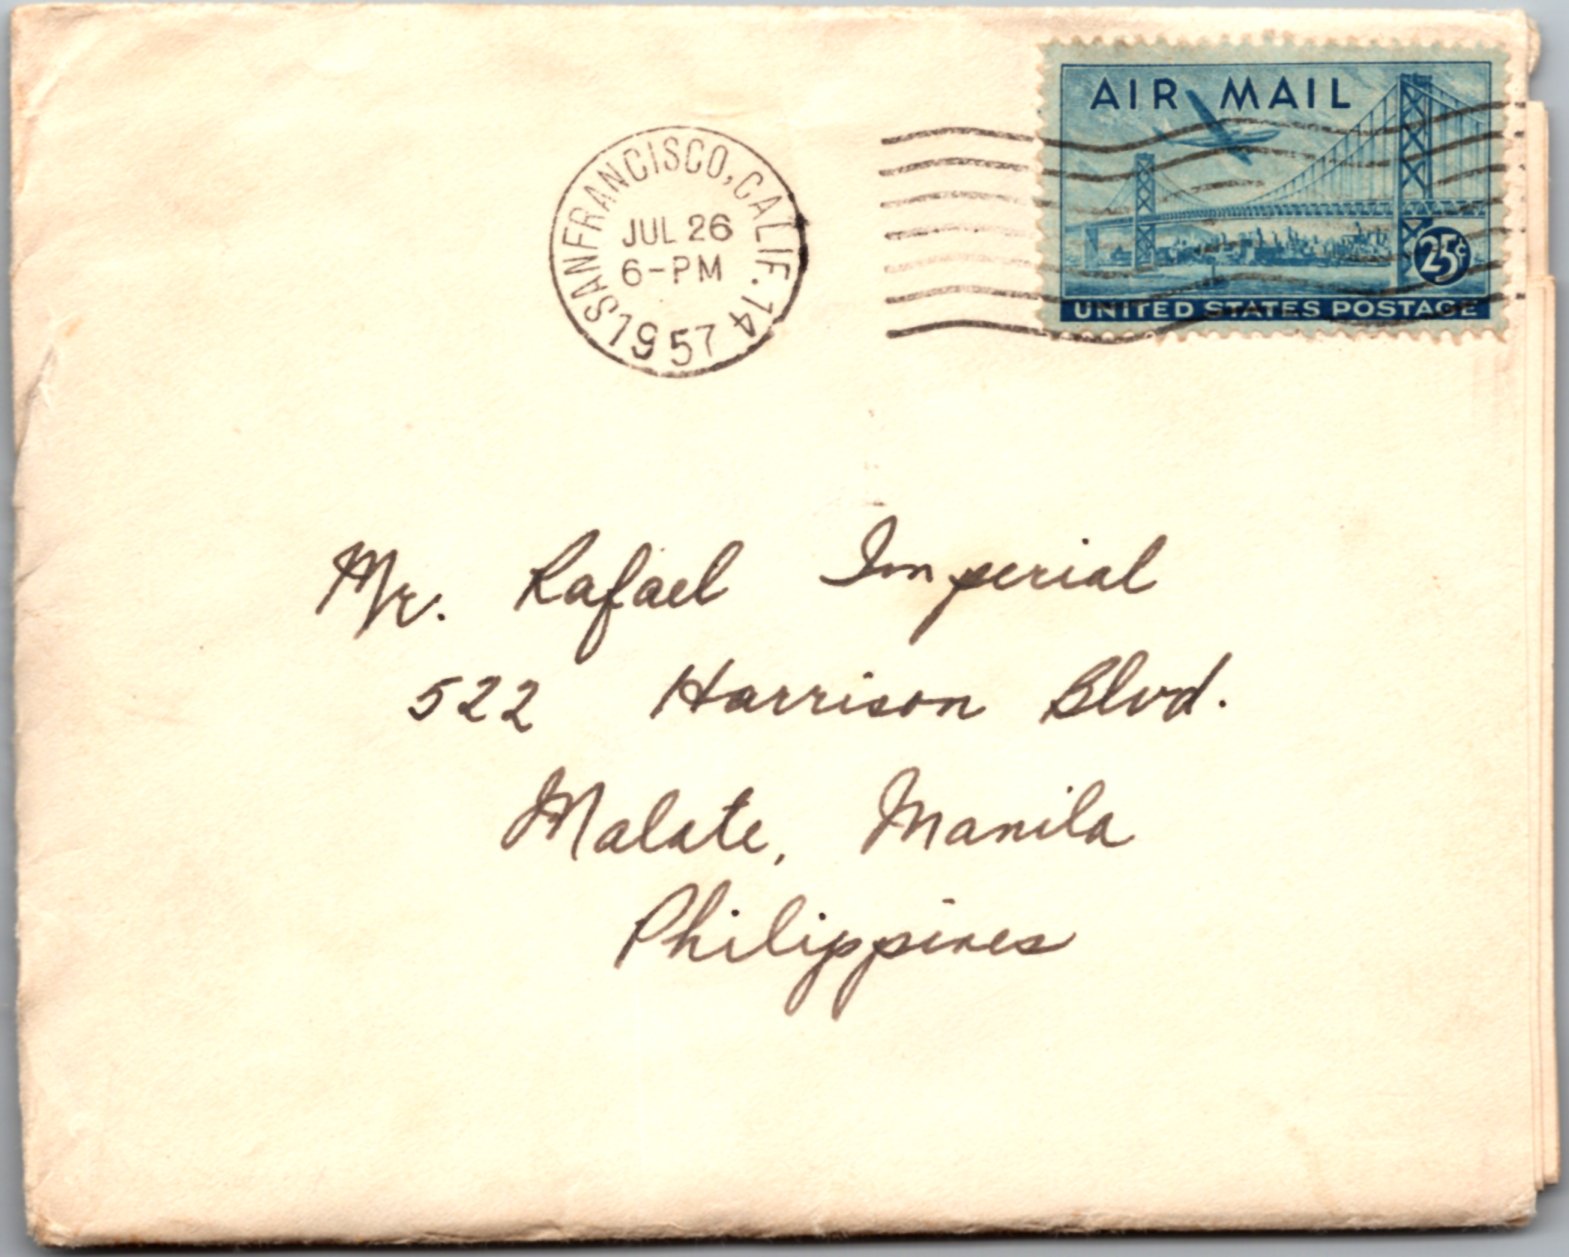 AIR MAIL
25¢
UNITED STATES POSTAGE
SAN FRANCISCO, CALIF. 14
JUL 26
6-PM
1957
Mr. Rafael Imperial
522 Harrison Blvd.
Malate, Manila
Philippines